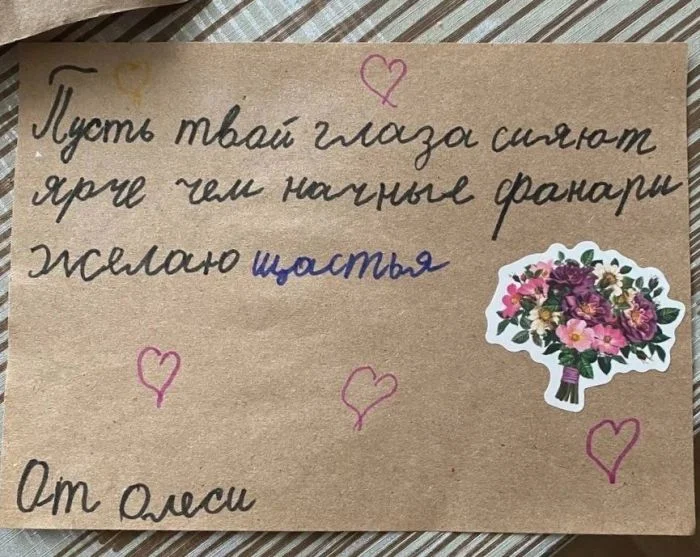 Пусть твой глаза сияют
ярче чем начные фанари
желаю щастья
От Олеси